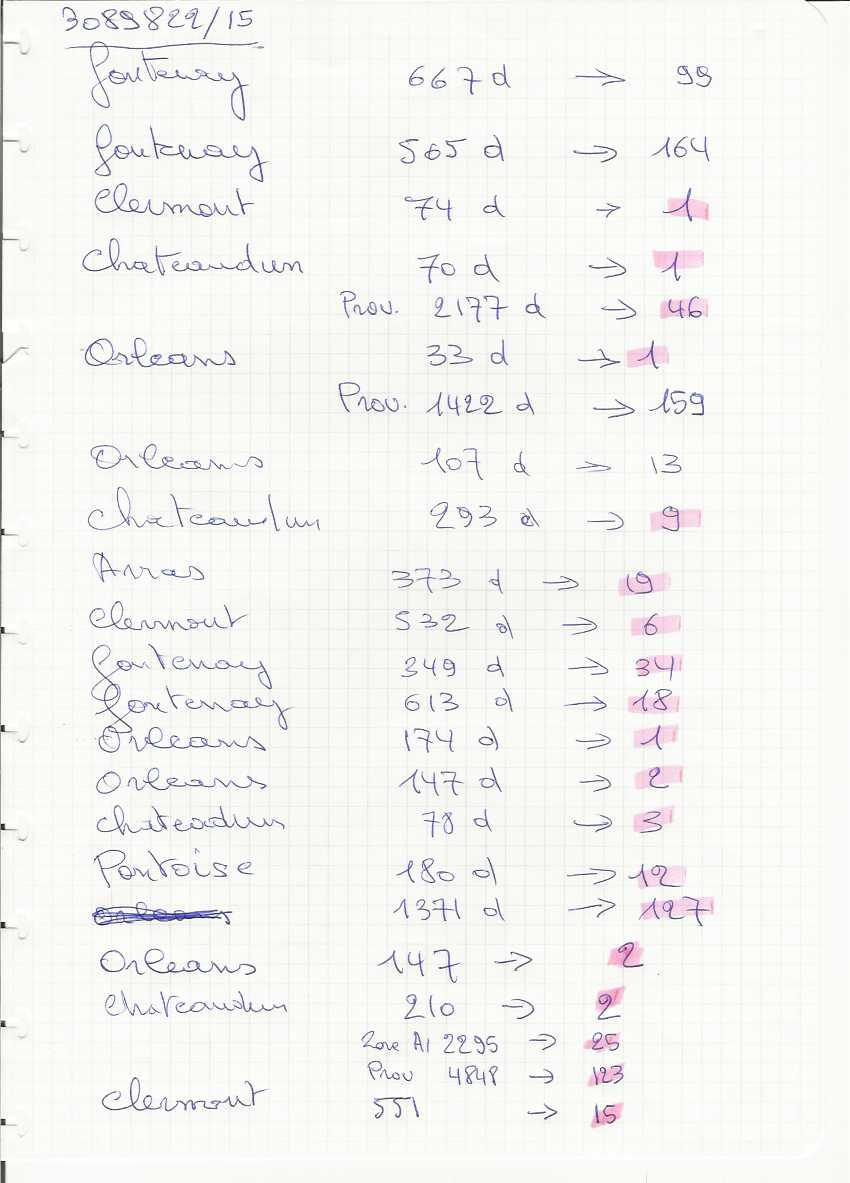 3089822/15
Fontenay 667 d → 99
Fontenay 565 d → 164
Clermont 74 d → 1
Chateaudun 70 d → 1
Prov. 2177 d → 46
Orleans 33 d → 1
Prov. 1422 d → 159
Orleans 107 d → 13
Chateaudun 293 d → 9
Arras 373 d → 19
Clermont 532 d → 6
Fontenay 349 d → 34
Fontenay 613 d → 18
Orleans 174 d → 1
Orleans 147 d → 2
Chateadun 78 d → 3
Pontoise 180 d → 12
Orleans 1371 d → 127
Orleans 147 → 2
Chateaudun 210 → 2
Zone A1 2295 → 25
Prov 4848 → 123
Clermont 551 → 15